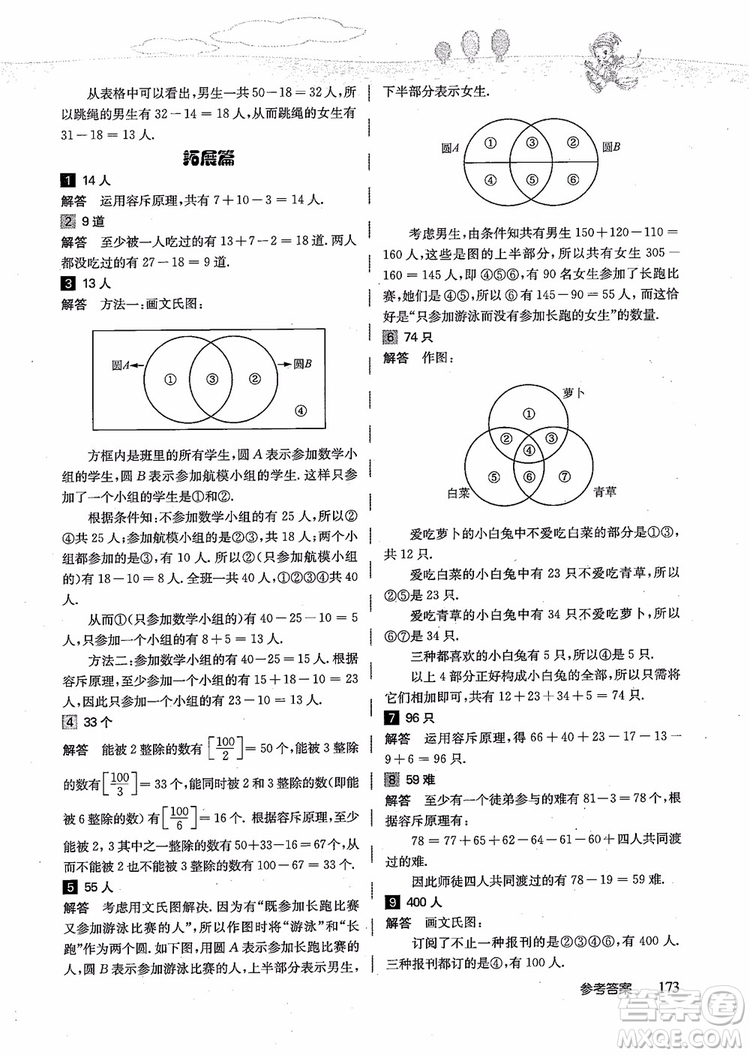 从表格中可以看出,男生一共50-18=32人,所
以跳绳的男生有32-14=18人,从而跳绳的女生有
31-18=13人.
拓展篇
1 14人
解答 运用容斥原理,共有7+10-3=14人.
2 9道
解答 至少被一人吃过的有13+7-2=18道.两人
都没吃过的有27-18=9道.
3 13人
解答 方法一:画文氏图:
圆A
①
③
②
圆B
④
方框内是班里的所有学生,圆A表示参加数学小
组的学生,圆B表示参加航模小组的学生.这样只参
加了一个小组的学生是①和②.
根据条件知:不参加数学小组的有25人,所以②
④共25人;参加航模小组的有18人,所以②③共18人;两个小
组都参加的是③,有10人.所以②(只参加航模小组的)
有18-10=8人.全班一共①②③④共有40
人.
从而①(只参加数学小组的)有40-25-10=5
人.只参加一个小组的有8+5=13人.
方法二:参加数学小组的有40-25=15人.根据
容斥原理,至少参加一个小组的有15+18-10=23
人,只参加一个小组的有23-10=13人.
4 33个
解答 能被2整除的数有[100/2]=50个,能被3整除
的数有[100/3]=33个,能同时被2、3整除的数(即能
被6整除的数)有[100/6]=16个.根据容斥原理,至少
能被2,3其中之一整除的数有50+33-16=67个,从
而不能被2,3整除的数有100-67=33个.
5 55人
解答 考虑用文氏图解决.因为有“既参加长跑比赛
又参加游泳比赛的人”,所以作图时将“游泳”和“长
跑”作为两个圆.如下图,用圆A表示参加长跑比赛的
人,圆B表示参加游泳比赛的人,上半部分表示男生,
下半部分表示女生.
圆A
①
③
②
④
⑤
⑥
圆B
考虑男生,由条件知共有男生150+120-110=
160人,这些是图的上半部分,所以共有女生305-
160=145人,即④⑤⑥;有90名女生参加了长跑比
赛,她们是④⑤,所以⑥有145-90=55人.而这恰
好是“只参加游泳而没有参加长跑的女生”的数量.
6 74只
解答 作图:
萝卜
①
②
③
④
⑤
⑥
⑦
白菜
青草
爱吃萝卜的小白兔中不爱吃白菜的部分是①③,
共12只.
爱吃白菜的小白兔中不爱吃青草的部分,所以
②⑤是23只.
爱吃青草的小白兔中有34只不爱吃萝卜,所以
⑥⑦是34只.
三种都喜欢的小白兔④有5只.
以上4部分正好构成小白兔的全体,所以只需将
它们相加即可,共有12+23+34+5=74只.
7 96只
解答 运用容斥原理,得66+42-12+27-33-
9+6=96只.
8 59难
解答 至少有一个徒弟参与的难有81-3=78难.
根据容斥原理,有:
78=77+55+54-53-50-64+师徒四人共同渡
过的难.
因此师徒四人共同渡过的有78-19=59难.
9 400人
解答 画文氏图:
订阅了不止一种报刊的是②③④⑥,有400人.
三种报刊都订的是④,有100人.
参考答案 173
答案圈